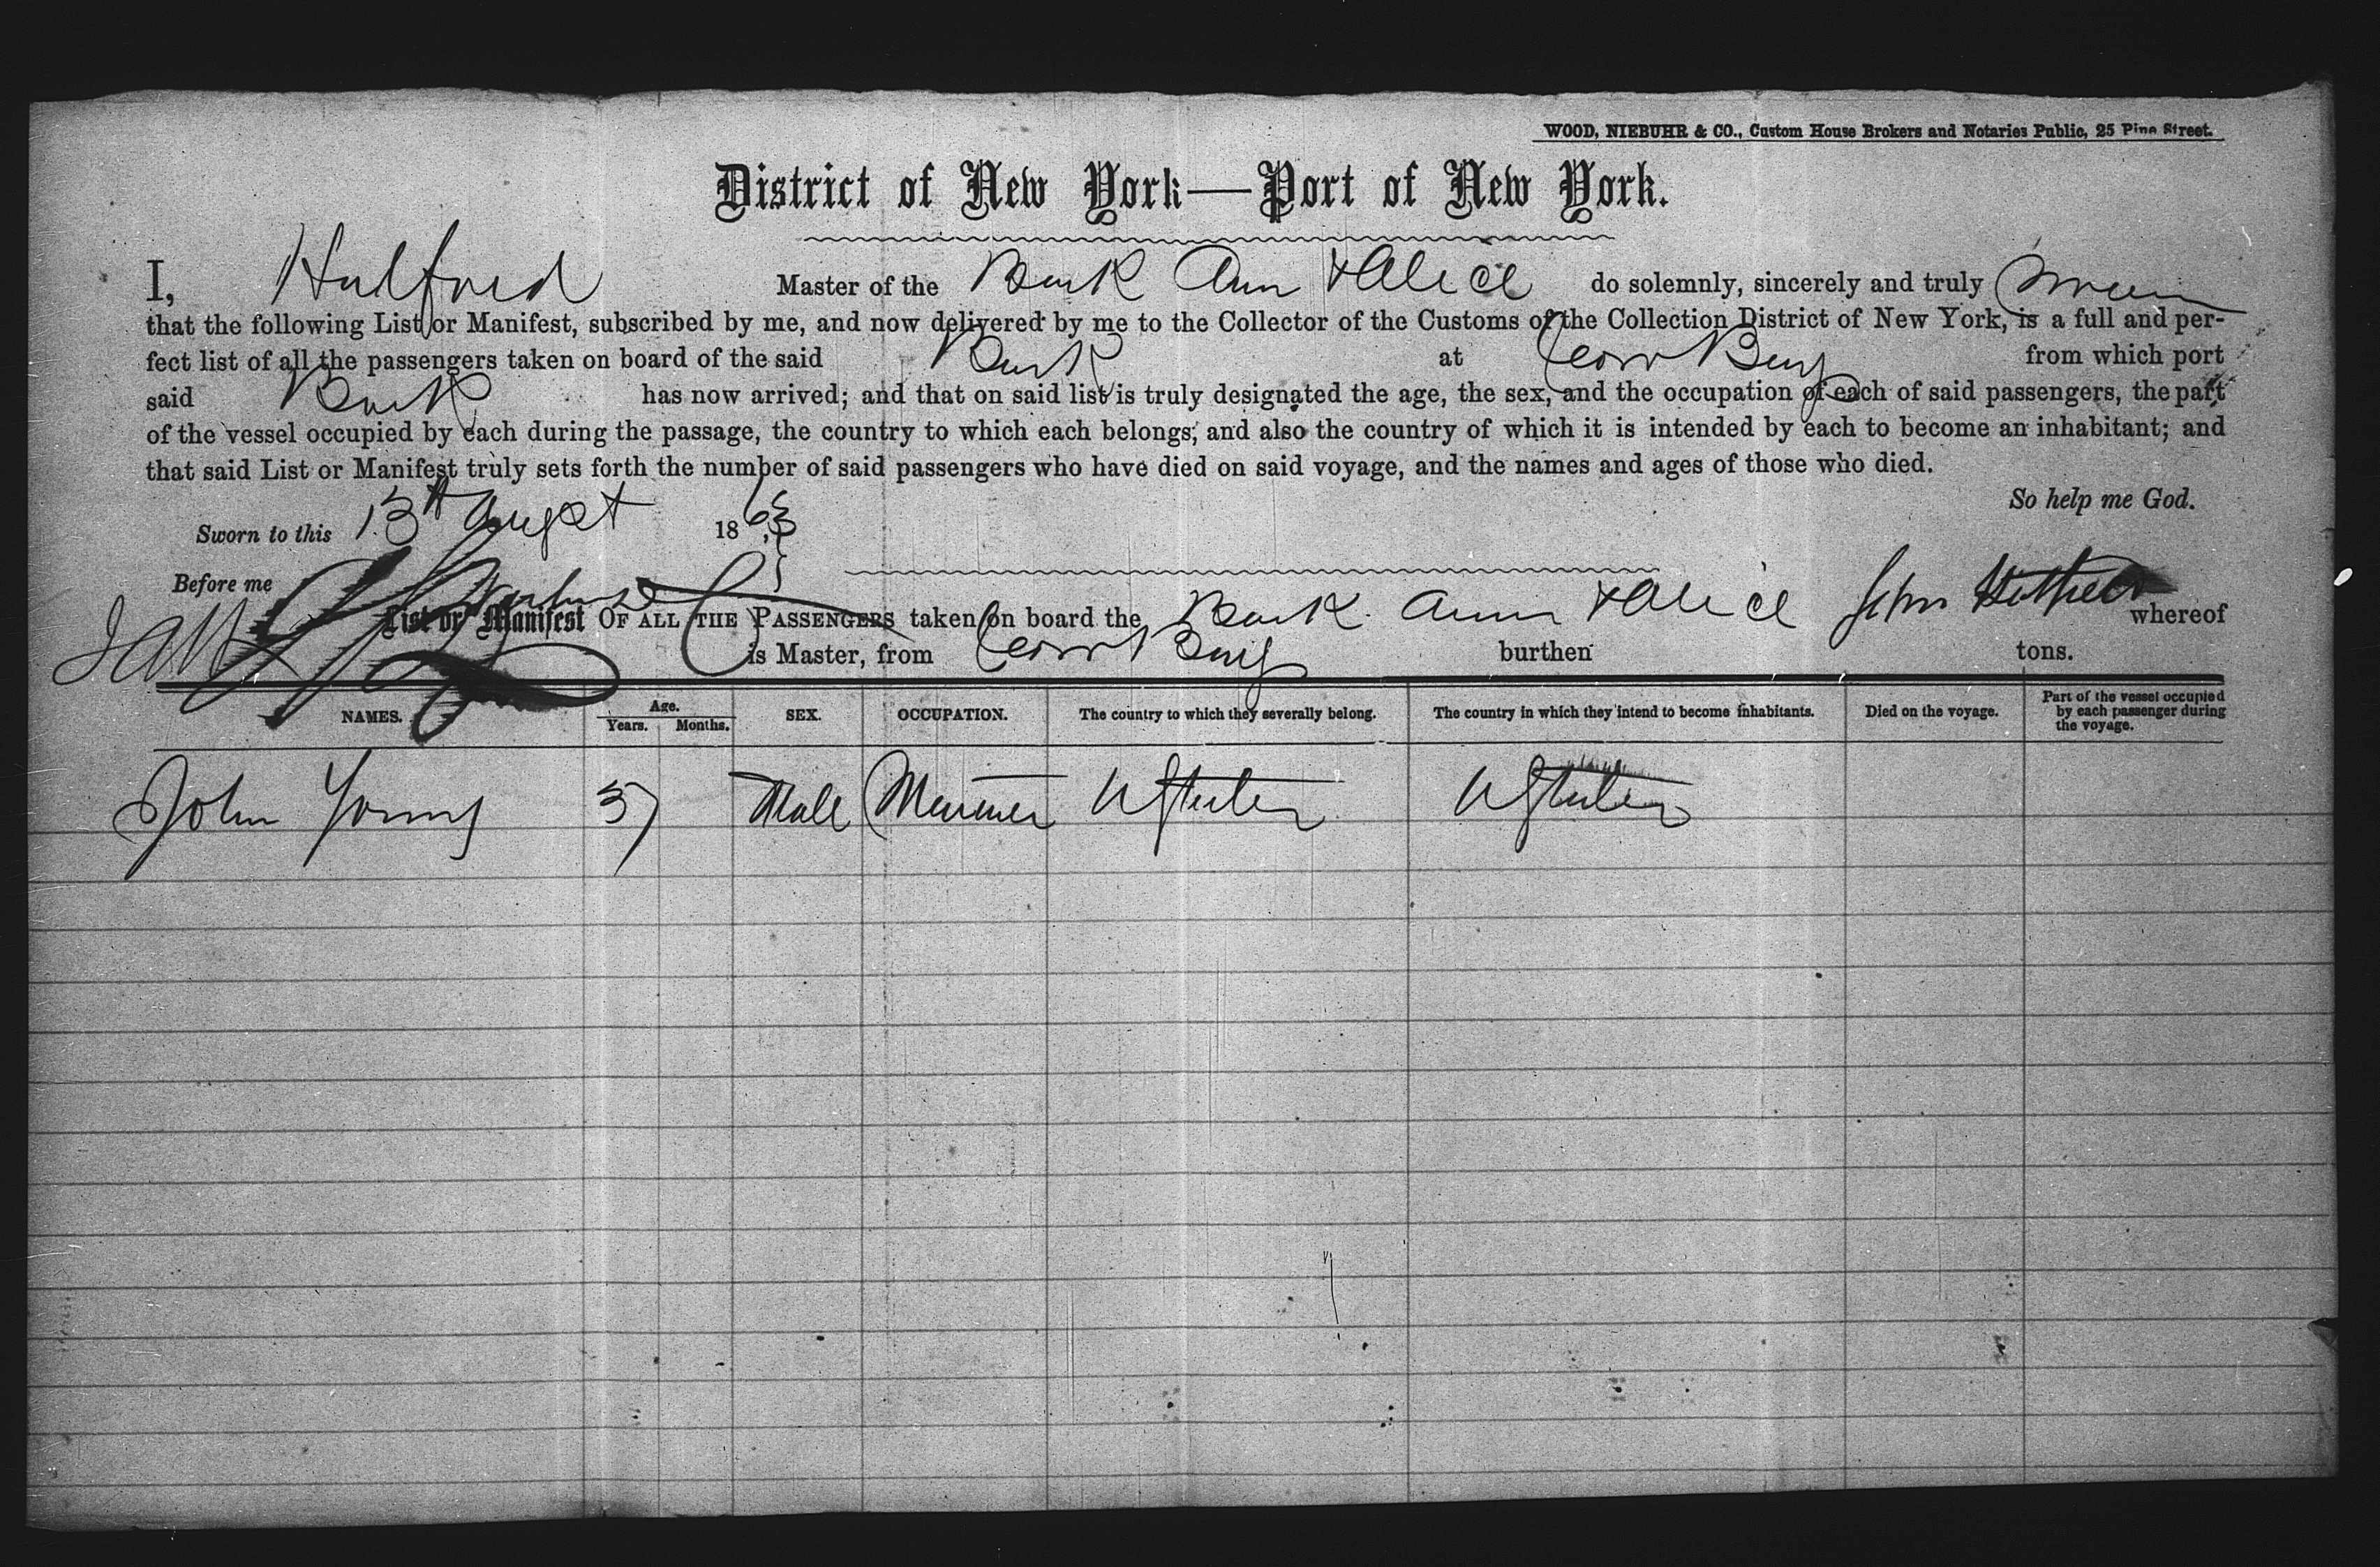 WOOD, NIEBUHR & CO., Custom House Brokers and Notaries Public, 25 Pine Street.
District of New York—Port of New York.
I, Master of the Bark Ann & Alice do solemnly, sincerely and truly swear
that the following List or Manifest, subscribed by me, and now delivered by me to the Collector of the Customs of the Collection District of New York, is a full and per-
fect list of all the passengers taken on board of the said Bark at Cow Bay from which port
said Bark has now arrived; and that on said list is truly designated the age, the sex, and the occupation of each of said passengers, the part
of the vessel occupied by each during the passage, the country to which each belongs; and also the country of which it is intended by each to become an inhabitant; and
that said List or Manifest truly sets forth the number of said passengers who have died on said voyage, and the names and ages of those who died.
So help me God.
Sworn to this 13th August 1863
Before me
List or Manifest OF ALL THE PASSENGERS taken on board the Bark Ann & Alice John whereof
is Master, from Cow Bay burthen tons.
NAMES. Age. Years. Months. SEX. OCCUPATION. The country to which they severally belong. The country in which they intend to become inhabitants. Died on the voyage. Part of the vessel occupied by each passenger during the voyage.
John Young 37 Male Mariner U States U States